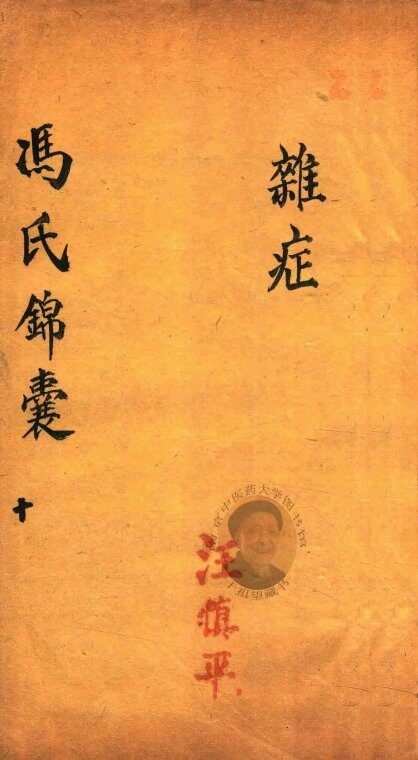 雜症
馮氏錦囊
十
汪慎平
南京中医药大学图书馆
干祖望藏书